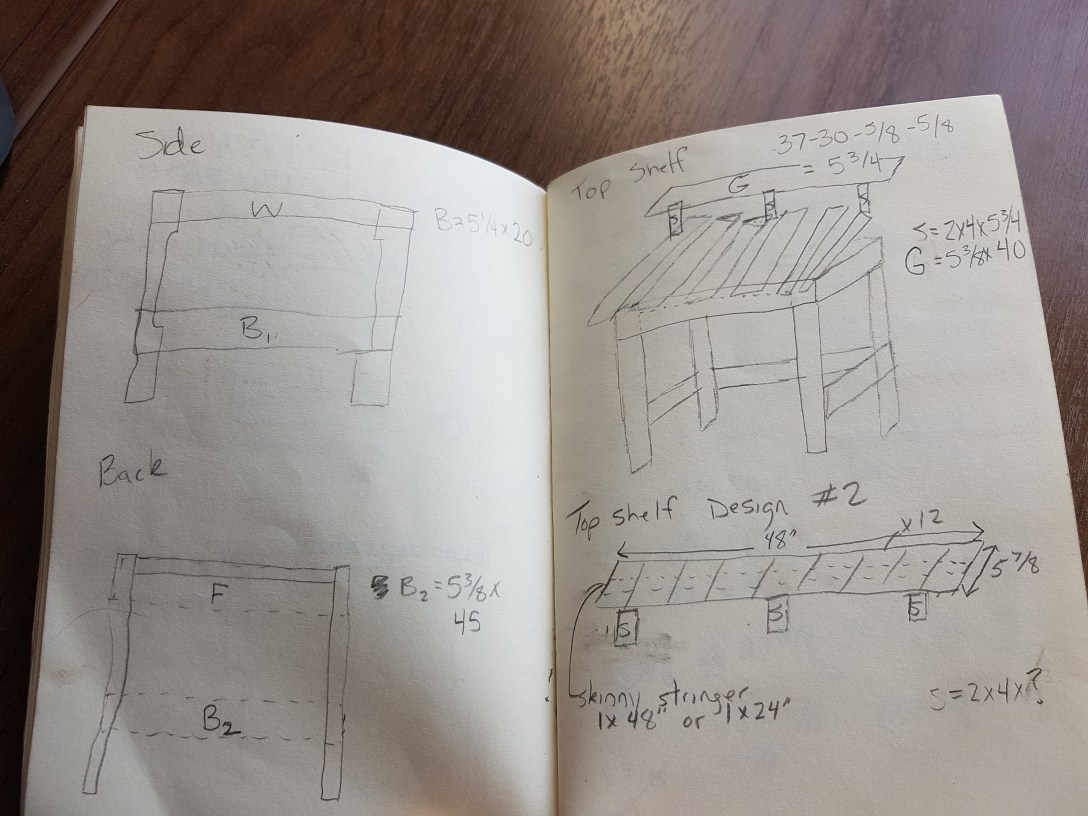 Side
W
B=5 1/4 x 20
B1
Back
F
B2 = 5 3/8 x
45
B2
Top Shelf
37-30-5/8-5/8
= 5 3/4
G
S=2x4x5 3/4
G=5 3/8x40
Top shelf Design #2
48"
x12
5 7/8
S
S
S
skinny stringer
1x48" or 1x24"
S=2x4x?